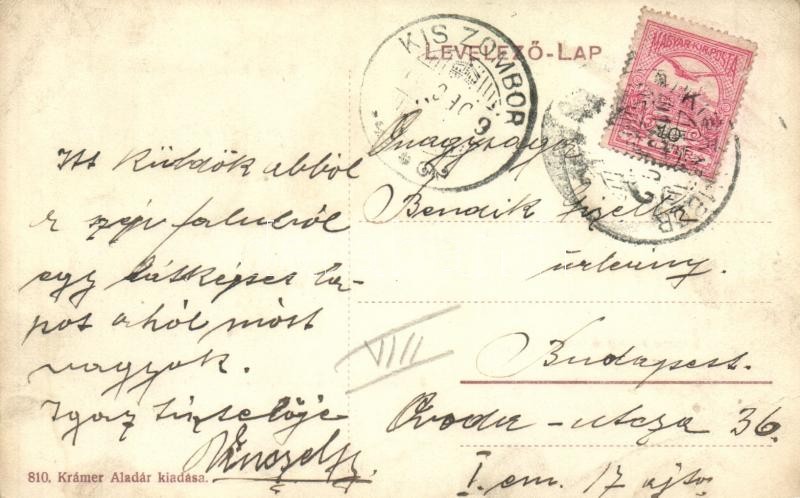 LEVELEZŐ-LAP
KIS ZOMBOR
MAGYAR KIR. POSTA
Itt küldök abból
a szép faluból
egy látképes la-
pot ahól most
vagyok.
Igaz tisztelője
810. Krámer Aladár kiadása.
Önagysága
Bendik Gizella
úrleány.
VIII
Budapest.
Ovoda-utcza 36.
I. em. 17 ajtó